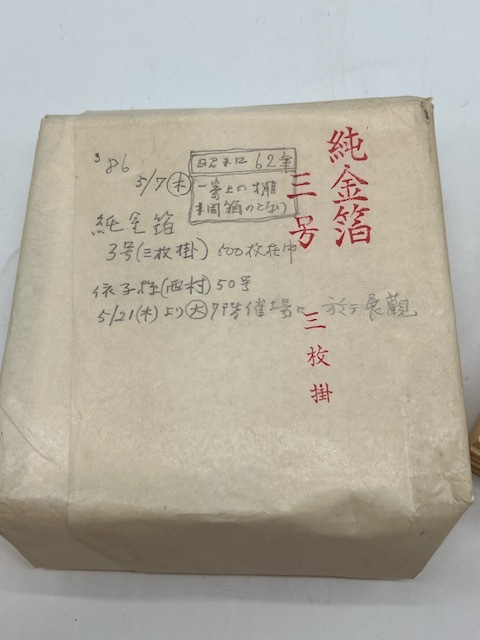 純金箔
三号
三枚掛
'86
5/7(木)
昭和62年
一番上の棚
桐箱のとなり
純金箔
3号(三枚掛) 500枚在中
依子様(西村)50号
5/21(木)より(大)7階催場に於て展観